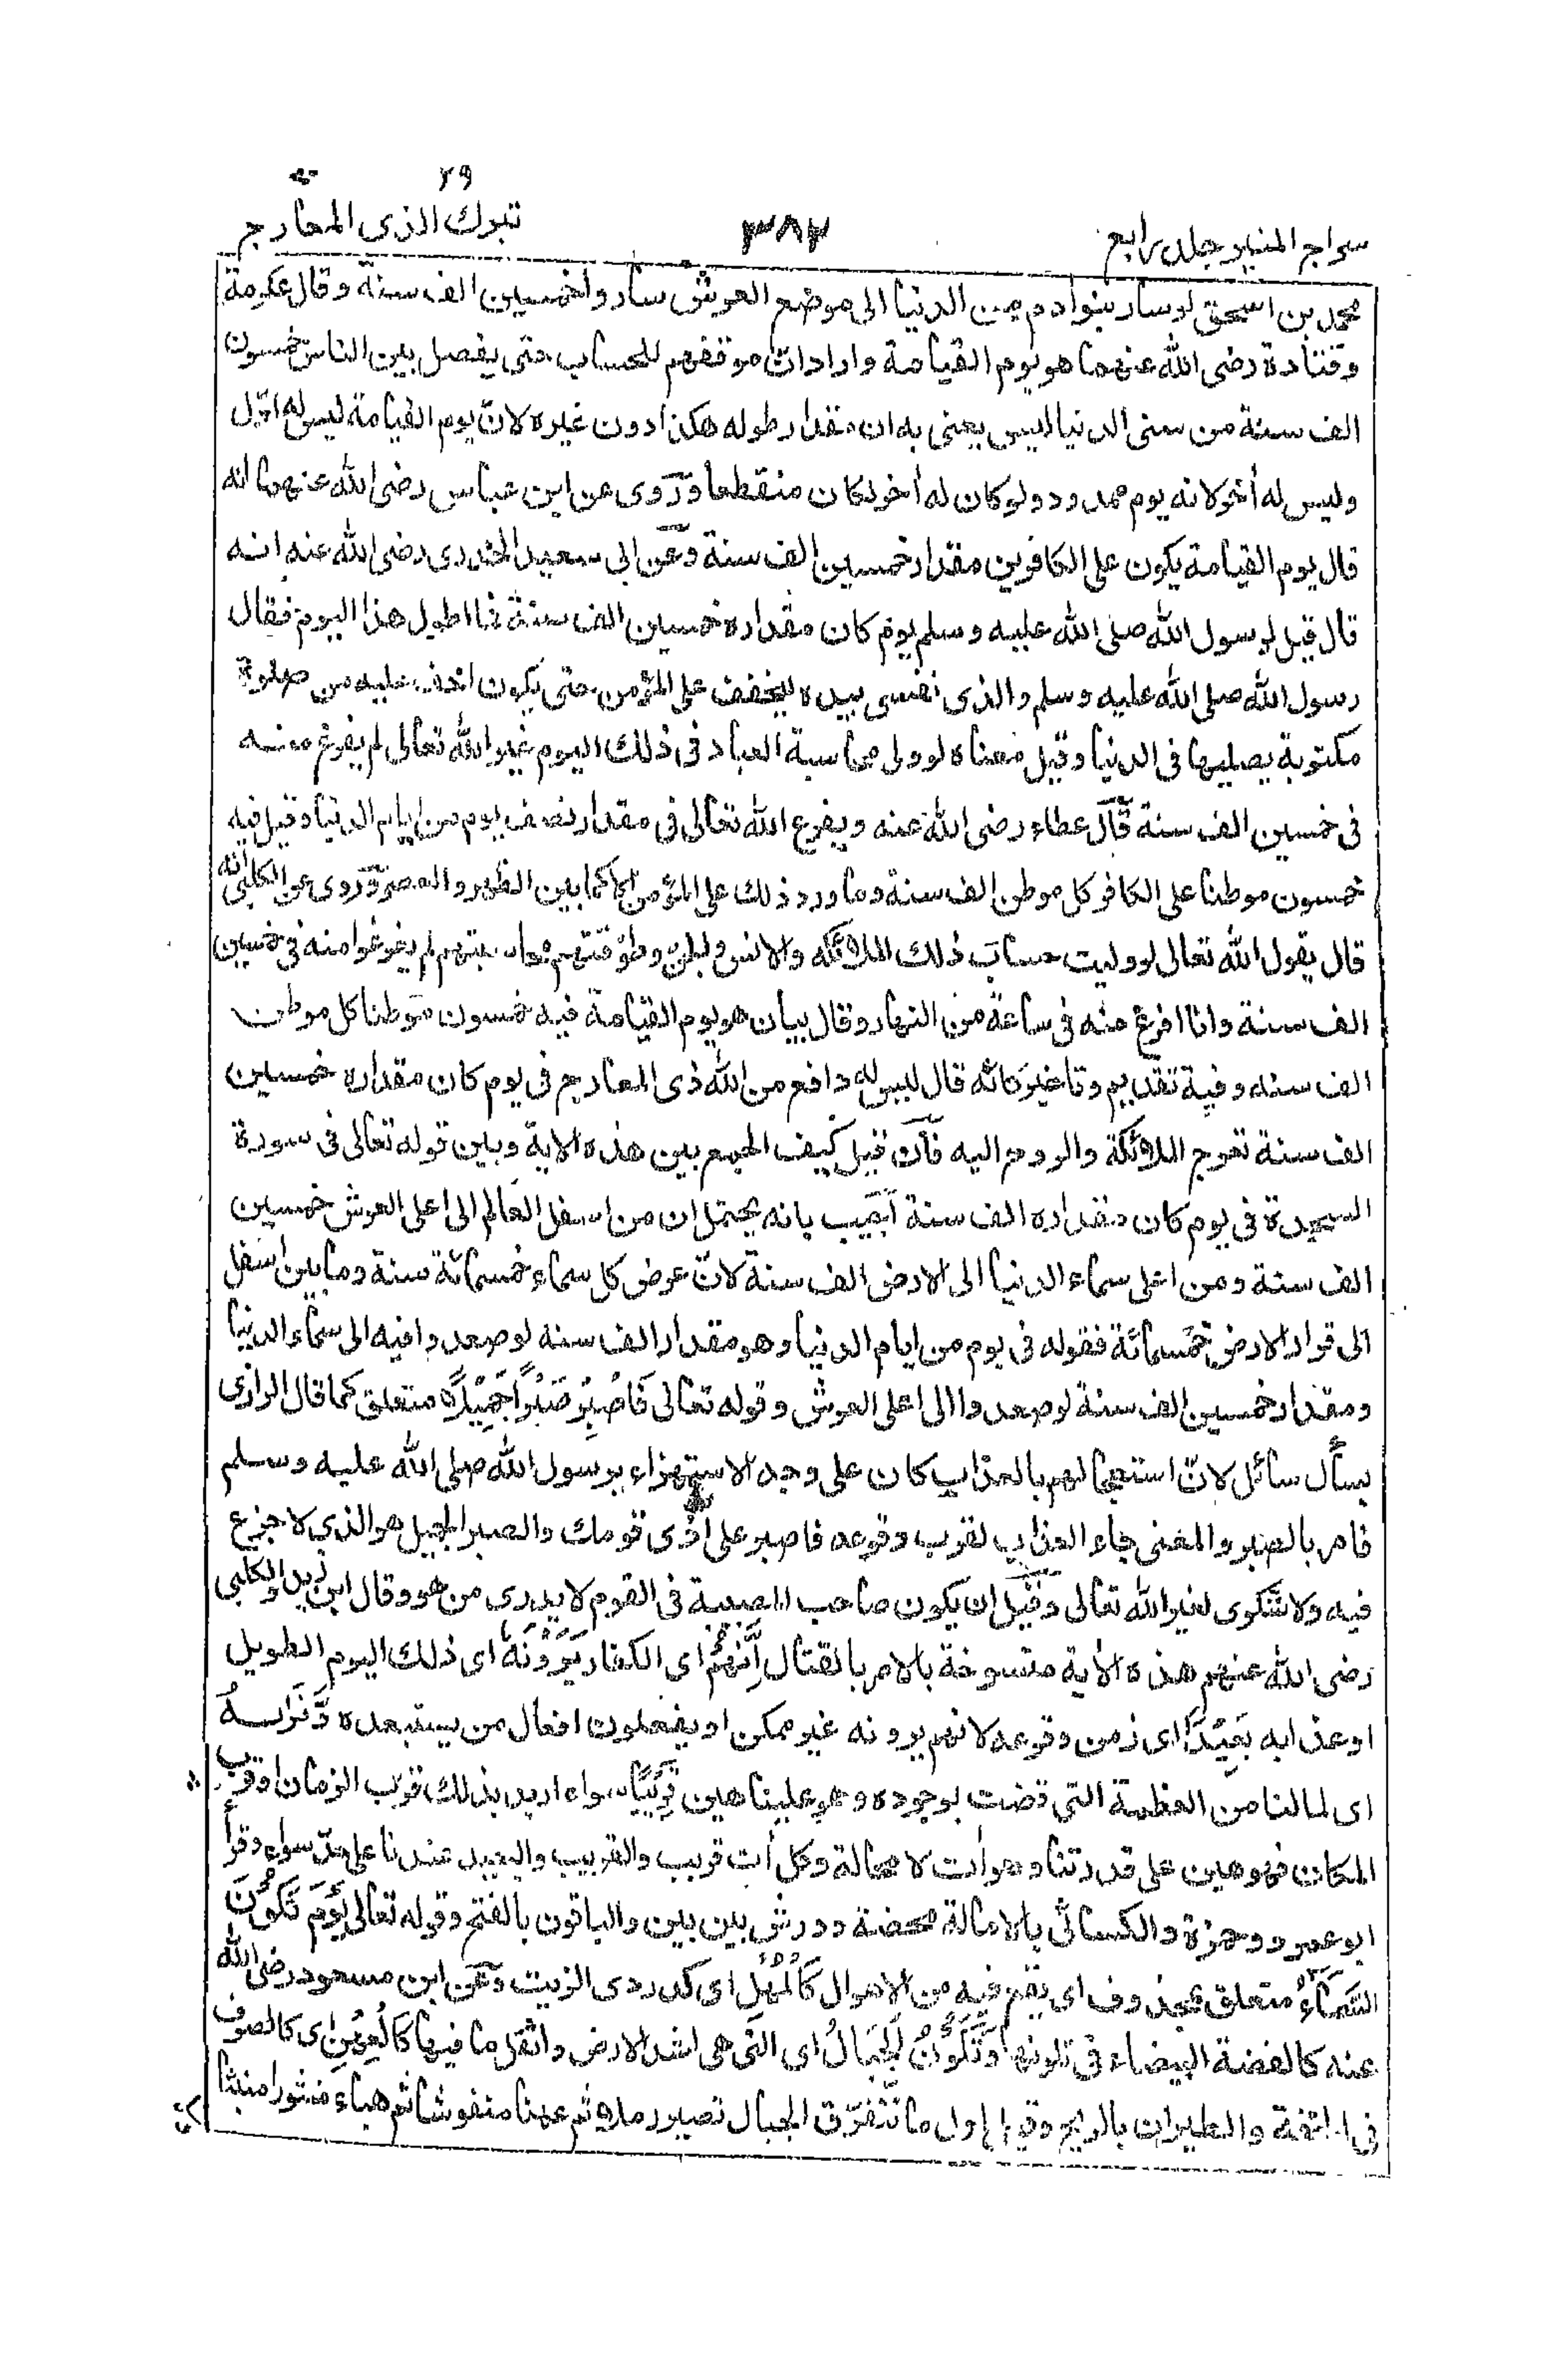 ٢٩
سراج المنير جلد رابع
٣٨٢
تبرك الذى المعارج
محمد بن اسحق لو سار بنوا دم من الدنيا الى موضع العرش ساروا خمسين الف سنة وقال عكرمة
وقتادة رضى الله عنهما هو يوم القيامة وارادان موقفهم للحساب حتى يفصل بين الناس خمسون
الف سنة من سنى الدنيا اليس يعنى به ان مقدار طوله هكذا دون غيره لان يوم القيامة ليس له اوّل
وليس له أخر لانه يوم ممدود ولو كان له أخر لكان منقطعا وروى عن ابن عباس رضى الله عنهما انه
قال يوم القيامة يكون على الكافرين مقدار خمسين الف سنة وعن ابى سعيد الخدرى رضى الله عنه انه
قال قيل لرسول الله صلى الله عليه وسلم يوم كان مقداره خمسين الف سنة فما اطول هذا اليوم فقال
رسول الله صلى الله عليه وسلم والذى نفسى بيده ليخفف على المؤمن حتى يكون اخف عليه من صلوة
مكتوبة يصليها فى الدنيا وقيل معناه لو ولى محاسبة العباد فى ذلك اليوم غير الله تعالى لم يفرغ منه
فى خمسين الف سنة قال عطاء رضى الله عنه ويفرغ الله تعالى فى مقدار نصف يوم من ايام الدنيا وقيل فيه
خمسون موطنا على الكافر كل موطن الف سنة وما ورد ذلك على المؤمن الا كما بين الظهر والعصر وروى عن الكلبى انه
قال يقول الله تعالى لو وليت حساب ذلك الملائكة والانس والجن وطوقتهم محاسبتهم لم يفرغوا منه فى خمسين
الف سنة وانا افرغ منه فى ساعة من النهار وقال بيان هو يوم القيامة فيه خمسون موطنا كل موطن
الف سنه وفيه تقديم وتاخير كانه قال ليس له دافع من الله ذى المعارج فى يوم كان مقداره خمسين
الف سنة تعرج الملائكة والروح اليه فان قيل كيف الجمع بين هذه الاية وبين قوله تعالى فى سورة
السجدة فى يوم كان مقداره الف سنة اجيب بانه يحتمل ان من اسفل العالم الى اعلى العرش خمسين
الف سنة ومن اعلى سماء الدنيا الى الارض الف سنة لان عرض كل سماء خمسمائة سنة وما بين اسفل
الى قرار الارض خمسمائة فقوله فى يوم من ايام الدنيا وهو مقدار الف سنه لو صعدوا فيه الى سماء الدنيا
ومقدار خمسين الف سنة لو صعدوا الى اعلى العرش وقوله تعالى فَاصْبِرْ صَبْرًا جَمِيْلًا متعلق كما قال الرازى
بسأل سائل لان استعجالهم بالعذاب كان على وجه الاستهزاء برسول الله صلى الله عليه وسلم
فامر بالصبر والمعنى جاء العذاب لقرب وقوعه فاصبر على اذى قومك والصبر الجميل هو الذى لا جزع
فيه ولا شكوى لغير الله تعالى وقيل ان يكون صاحب المصيبة فى القوم لا يدرى من هو وقال ابن زيد والكلبى
رضى الله عنهم هذه الاية منسوخة بالامر بالقتال اِنَّهُمْ اى الكفار يَرَوْنَهُ اى ذلك اليوم الطويل
او عذابه بَعِيْدًا اى زمن وقوعه لانهم يرونه غير ممكن او يفعلون افعال من يستبعده وَّنَرٰىهُ
اى لما لنا من العظمة التى قضت بوجوده وهو علينا هين قَرِيْبًا سواء اريد بذلك قرب الزمان او قرب
المكان فهو هين على قدرتنا وهو أت لا محالة وكل أت قريب والقريب والبعيد عندنا على حد سواء وقرأ
ابو عمرو وحمزة والكسائى بالامالة محضة وورش بين بين والباقون بالفتح وقوله تعالى يَوْمَ تَكُوْنُ
السَّمَآءُ متعلق بمحذوف اى يقع فيه من الاهوال كَالْمُهْلِ اى كدردى الزيت وعن ابن مسعود رضى الله
عنه كالفضة البيضاء فى تلونها وَتَكُوْنُ الْجِبَالُ اى التى هى اشد الارض واثقل ما فيها كَالْعِهْنِ اى كالصوف
فى الخفة والطيران بالريح وقيل اول ما تتفرق الجبال تصير رملا ثم عهنا منفوشا ثم هباء منثورا منبثا